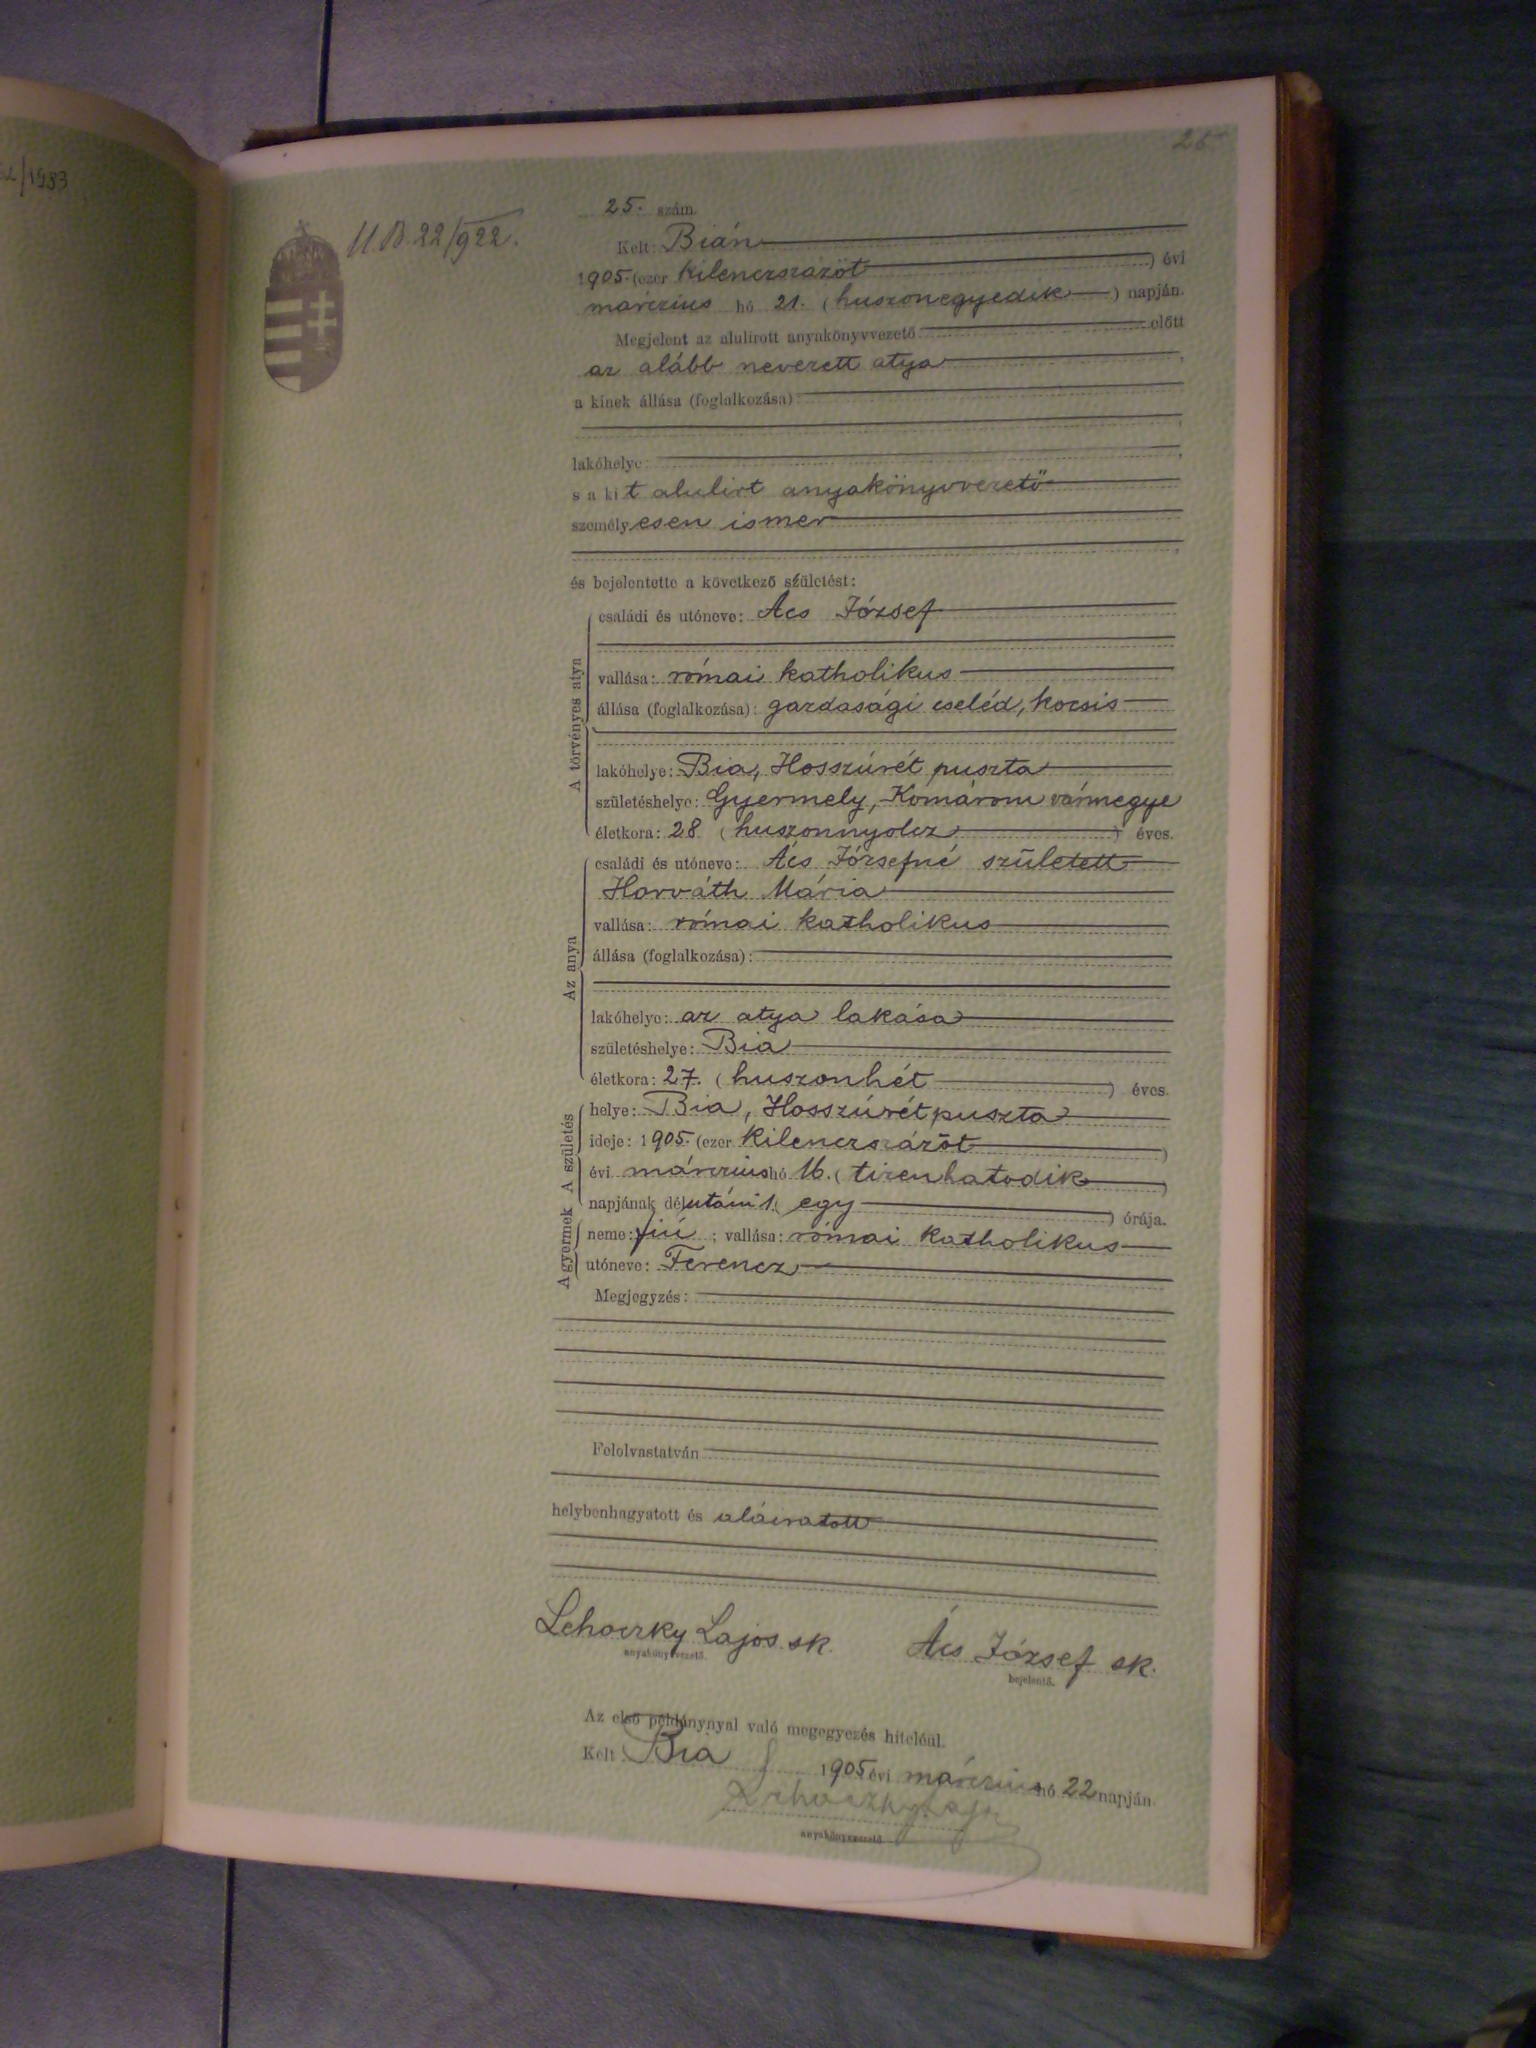 25
/1983
U.B. 22/922.
25. szám.
Kelt: Bián
1905. (ezer kilenczszázöt) évi
márczius hó 21. (huszonegyedik) napján.
Megjelent az alulírott anyakönyvvezető előtt
az alább nevezett atya,
a kinek állása (foglalkozása)
lakóhelye:
s a kit alulírt anyakönyvvezető
személyesen ismer
és bejelentette a következő születést:
A törvényes atya
családi és utóneve: Ács József
vallása: római katholikus
állása (foglalkozása): gazdasági cseléd, kocsis
lakóhelye: Bia, Hosszúrét puszta
születéshelye: Gyermely, Komárom vármegye
életkora: 28 (huszonnyolcz) éves.
Az anya
családi és utóneve: Ács Józsefné született
Horváth Mária
vallása: római katholikus
állása (foglalkozása):
lakóhelye: az atya lakása
születéshelye: Bia
életkora: 27. (huszonhét) éves.
A születés
helye: Bia, Hosszúrét puszta
ideje: 1905. (ezer kilenczszázöt)
évi márczius hó 16. (tizenhatodik)
napjának délutáni 1. (egy) órája.
A gyermek
neme: fiú; vallása: római katholikus
utóneve: Ferencz
Megjegyzés:
Felolvastatván
helybenhagyatott és aláiratott
Lehoczky Lajos sk. Ács József sk.
anyakönyvvezető. bejelentő.
Az első példánynyal való megegyezés hiteléül.
Kelt: Bia 1905 évi márczius hó 22 napján
Lehoczky Lajos
anyakönyvvezető